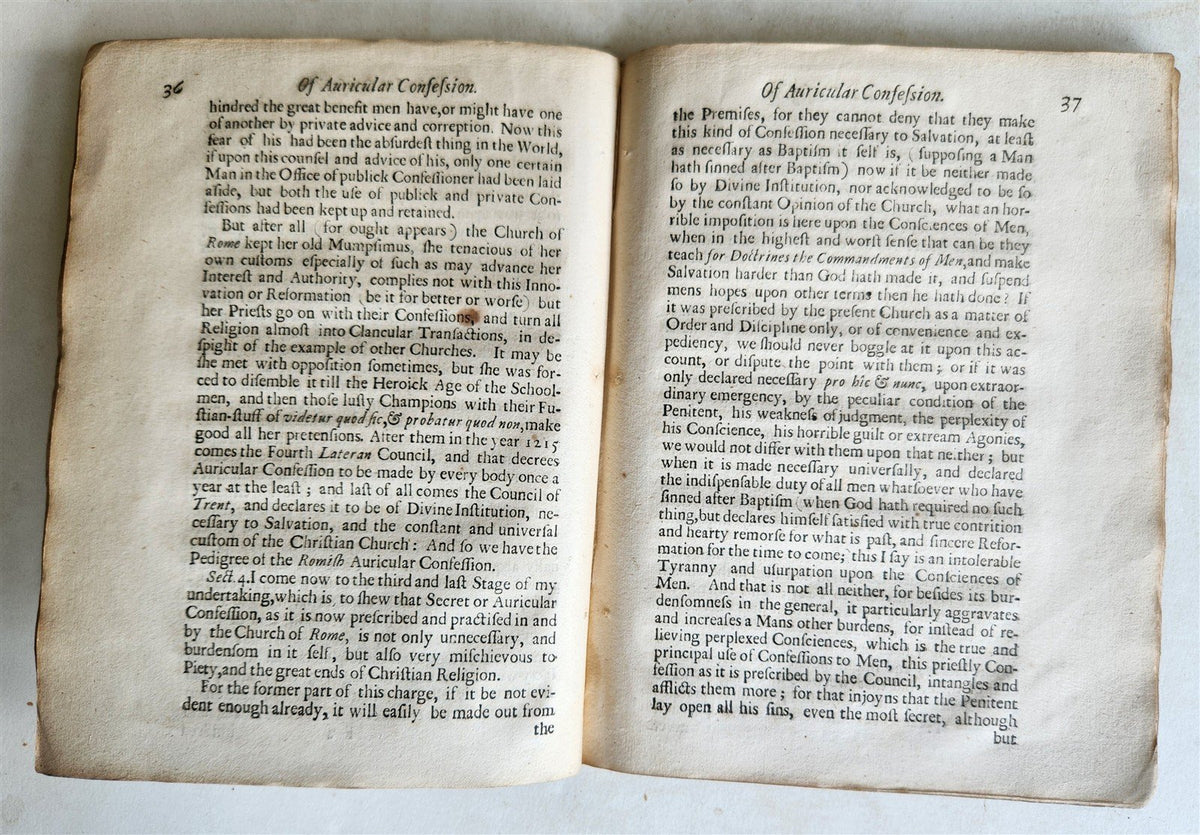 36
Of Auricular Confeſsion.
hindred the great benefit men have,or might have one
of another by private advice and correption. Now this
fear of his had been the abſurdeſt thing in the World,
if upon this counſel and advice of his, only one certain
Man in the Office of publick Confeſſioner had been laid
aſide, but both the uſe of publick and private Con-
feſſions had been kept up and retained.
But after all (for ought appears) the Church of
Rome kept her old Mumpſimus, ſhe tenacious of her
own cuſtoms eſpecially of ſuch as may advance her
Intereſt and Authority, complies not with this Inno-
vation or Reformation (be it for better or worſe) but
her Prieſts go on with their Confeſſions, and turn all
Religion almoſt into Clancular Tranſactions, in de-
ſpight of the example of other Churches. It may be
ſhe met with oppoſition ſometimes, but ſhe was for-
ced to diſemble it till the Heroick Age of the School-
men, and then thoſe luſty Champions with their Fu-
ſtian-ſtuff of videtur quod ſic,& probatur quod non,make
good all her pretenſions. After them in the year 1215
comes the Fourth Lateran Council, and that decrees
Auricular Confeſſion to be made by every body once a
year at the leaſt ; and laſt of all comes the Council of
Trent, and declares it to be of Divine Inſtitution, ne-
ceſſary to Salvation, and the conſtant and univerſal
cuſtom of the Chriſtian Church : And ſo we have the
Pedigree of the Romiſh Auricular Confeſſion.
Sect. 4.I come now to the third and laſt Stage of my
undertaking,which is, to ſhew that Secret or Auricular
Confeſſion, as it is now preſcribed and practiſed in and
by the Church of Rome, is not only unneceſſary, and
burdenſom in it ſelf, but alſo very miſchievous to
Piety,and the great ends of Chriſtian Religion.
For the former part of this charge, if it be not evi-
dent enough already, it will eaſily be made out from
the
Of Auricular Confeſsion.
37
the Premiſes, for they cannot deny that they make
this kind of Confeſſion neceſſary to Salvation, at leaſt
as neceſſary as Baptiſm it ſelf is, (ſuppoſing a Man
hath ſinned after Baptiſm) now if it be neither made
ſo by Divine Inſtitution, nor acknowledged to be ſo
by the conſtant Opinion of the Church, what an hor-
rible impoſition is here upon the Conſciences of Men,
when in the higheſt and worſt ſenſe that can be they
teach for Doctrines the Commandments of Men,and make
Salvation harder than God hath made it, and ſuſpend
mens hopes upon other terms then he hath done? If
it was preſcribed by the preſent Church as a matter of
Order and Diſcipline only, or of convenience and ex-
pediency, we ſhould never boggle at it upon this ac-
count, or diſpute the point with them ; or if it was
only declared neceſſary pro hic & nunc, upon extraor-
dinary emergency, by the peculiar condition of the
Penitent, his weakneſs of judgment, the perplexity of
his Conſcience, his horrible guilt or extream Agonies,
we would not differ with them upon that neither ; but
when it is made neceſſary univerſally, and declared
the indiſpenſable duty of all men whatſoever who have
ſinned after Baptiſm (when God hath required no ſuch
thing,but declares himſelf ſatisfied with true contrition
and hearty remorſe for what is paſt, and ſincere Refor-
mation for the time to come; this I ſay is an intolerable
Tyranny and uſurpation upon the Conſciences of
Men. And that is not all neither, for beſides its bur-
denſomneſs in the general, it particularly aggravates
and increaſes a Mans other burdens, for inſtead of re-
lieving perplexed Conſciences, which is the true and
principal uſe of Confeſſions to Men, this prieſtly Con-
feſſion as it is preſcribed by the Council, intangles and
afflicts them more ; for that injoyns that the Penitent
lay open all his ſins, even the moſt ſecret, although
but